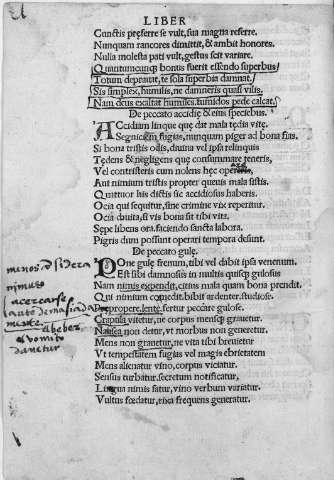 LIBER
Cunctis præferre se vult, sua magna referre.
Nunquam rancores dimittit, & ambit honores.
Nulla molesta pati vult, gestus scit variare.
Quantumcunq; bonus fuerit essendo superbus
Totum depravat, te sola superbia damnat.
Sis simplex, humilis, ne damneris quasi vilis.
Nam deus exaltat humiles, tumidos pede calcat.
De peccato accidię & eius speciebus.
ACcidiam linque que dat mala tedia vite,
Segniciem fugias, nunquam piger ad bona fias.
Si bona tristis
Tędens & negligens que consummare teneris,
Vel contristeris cum nolens hęc
Aut nimium tristis propter queuis mala sistis.
Quatuor his dictis sic accidiosus haberis.
Ocia qui sequitur, sine crimine vix reperitur.
Ocia deuita, si vis bona sit tibi vita.
Sępe libens ora, faciendo sancta labora.
Pigris dum possunt operari tempora desunt.
De peccato gulę.
POne gulę frenum, tibi vel dabit ipsa venenum.
Est sibi damnosis in multis quisq; gulosus
Nam nimis expendit, citius mala quam bona prendit.
Qui nimium comedit, bibit ardenter, studiose.
Prępropere, lente, fertur peccare gulose.
Crapula vitetur, ne corpus mensq; grauetur.
Nausea non detur, vt morbus non generetur.
Mens non grauetur, ne vita tibi brevietur
Vt tempestatem fugias vel magis ebrietatem
Mens alienatur vino, corpus viciatur.
Sensus turbatur, secretum notificatur,
Lingua nimis fatur, vino verbum variatur.
Vultus fœdatur, rixa frequens generatur.
acercarse
mente
el beber
el vomito